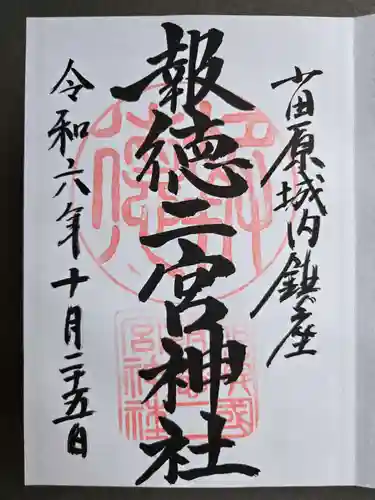 小田原城内鎮座
報徳二宮神社
令和六年十月二十五日